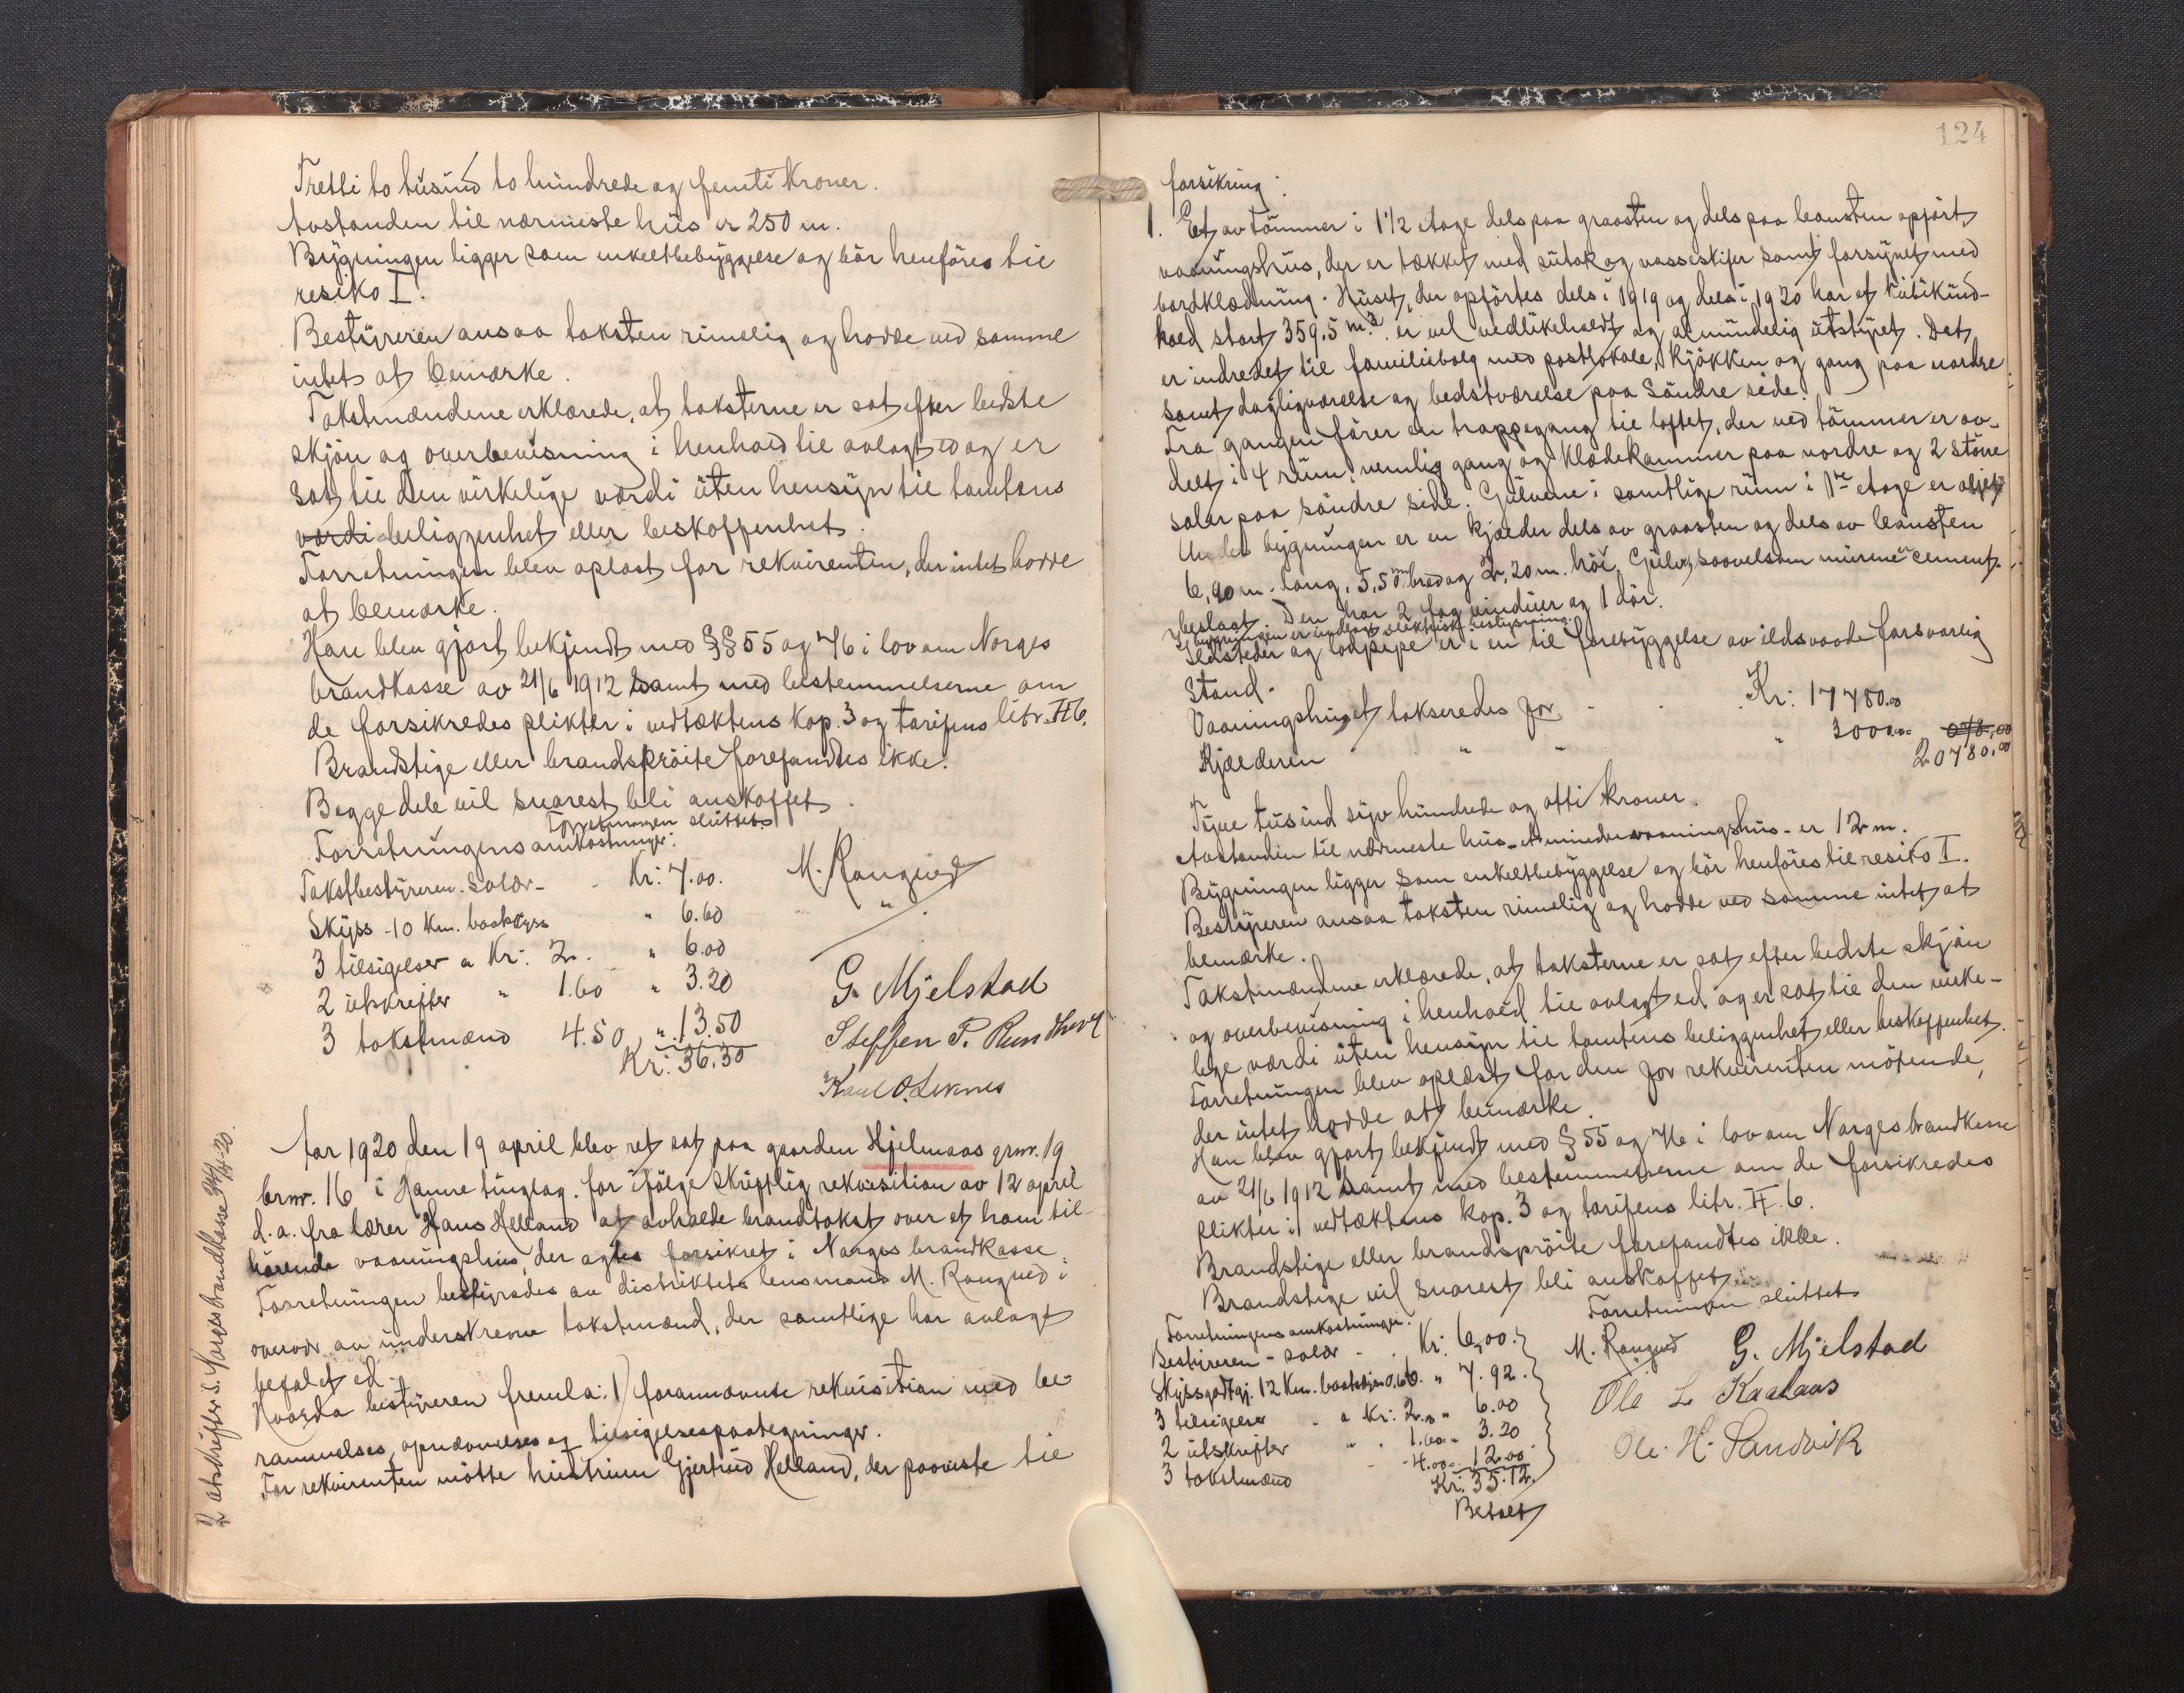 Tretti to tusind to hundrede og femti kroner.
Avstanden til nærmeste hus er 250 m.
Bygningen ligger som enkeltbebyggelse og bør henføres til
resiko I.
Bestyreren ansaa taksten rimelig og hadde ved samme
intet at bemærke.
Takstmændene erklærede, at taksterne er sat efter bedste
skjøn og overbevisning i henhold til avlagt ed og er
sat til den virkelige værdi uten hensyn til tomtens
værdi beliggenhet eller beskaffenhet.
Forretningen blev oplæst for rekvirenten, der intet hadde
at bemærke.
Han blev gjort bekjendt med §§ 55 og 76 i lov om Norges
brandkasse av 21/6 1912 samt med bestemmelserne om
de forsikredes plikter i vedtæktens kap. 3 og tarifens litr. H 6.
Brandstige eller brandsprøite forefandtes ikke.
Begge dele vil snarest bli anskaffet.
Forretningen sluttet.
Forretningens omkostninger:
Takstbestyreren. Salær - - Kr: 7.00. M. Rangnæd
Skyss - 10 km. baatskyss " 6.60 "
3 tilsigelser a Kr: 2. " 6.00
2 utskrifter " 1.60 " 3.20 G. Mjelstad
3 takstmænd 4.50 " 13.50 Steffen P. Rundhovd
Kr: 36.30
Knut O. Leknes
2 utskrifter s. Norges brandkasse 24/4-20.
Aar 1920 den 19 april blev ret sat paa gaarden Hjelmaas grnr. 19
brnr. 16 i Hamre tinglag. for ifølge skriftlig rekvisition av 12 april
d.a. fra lærer Hans Helland at avholde brandtakst over et ham til-
hørende vaaningshus, der agtes forsikret i Norges brandkasse.
Forretningen bestyredes av distriktets lensmand M. Rangnæd i
overvær av underskrevne takstmænd, der samtlige har avlagt
befalet ed.
Hvorda bestyreren fremla: 1) forannævnte rekvisition med be-
rammelses, opnævnelses og tilsigelsespaategninger.
For rekvirenten møtte hustruen Gjertrud Helland, der paaviste til
124
forsikring:
1. Et av tømmer i 1 1/2 etage dels paa graasten og dels paa beansten opført
vaaningshus, der er tækket med sutak og vasseskifer samt forsynet med
bordklædning. Huset, der opførtes dels i 1919 og dels i 1920 har et kubikind-
hold stort 359,5 m.3. er vel vedlikeholdt og almindelig utstyret. Det
er indredet til familiebolig med postlokale, kjøkken og gang paa nordre
samt dagligværelse og bedstværelse paa søndre side.
Fra gangen fører en trappegang til loftet, der ved tømmer er av-
delt i 4 rum, nemlig gang og klædekammer paa nordre og 2 større
saler paa søndre side. Gulvene i samtlige rum i 1ste etage er oljet
Under bygningen er en kjælder dels av graasten og dels av beansten
6,90 m. lang, 5,50 m bred og 2,20 m. høi. Gulv, saavelsom murene er cement-
beslaat. Den har 2 fag vinduer og 1 dør.
I bygningen er indlagt elektrisk belysning.
Ildsteder og ladpipe er i en til forebyggelse av ildsvaade forsvarlig
stand.
Vaaningshuset takseredes for - . . Kr: 17780.00
Kjælderen " " " 3000.00 078,00
20780,00
Tyve tusind syv hundrede og otti kroner.
Avstanden til nærmeste hus - et mindre vaaningshus - er 12 m.
Bygningen ligger som enkeltbebyggelse og bør henføres til resiko I.
Bestyreren ansaa taksten rimelig og hadde ved samme intet at
bemærke.
Takstmændene erklærede, at taksterne er sat efter bedste skjøn
og overbevisning i henhold til avlagt ed og er sat til den virke-
lige værdi uten hensyn til tomtens beliggenhet eller beskaffenhet.
Forretningen blev oplæst for den for rekvirenten møtende,
der intet hadde at bemærke.
Han blev gjort bekjendt med § 55 og 76 i lov om Norges brandkasse
av 21/6 1912 samt med bestemmelserne om de forsikredes
plikter i vedtæktens kap. 3 og tarifens litr. H. 6.
Brandstige eller brandsprøite forefandtes ikke.
Brandstige vil snarest bli anskaffet.
Forretningen sluttet
Forretningens omkostninger:
Bestyreren - salær - . Kr: 6,00. M. Rangnæd G. Mjelstad
Skyssgodtgj. 12 Km. baatskyss 0,66. " 7.92.
3 tilsigelser - a Kr: 2.00 " 6.00 Ole L. Kaalaas
2 utskrifter " . 1.60 " 3.20
3 takstmænd - 4.00 - 12.00 Ole. H. Sandvik
Kr: 35.12.
Betalt